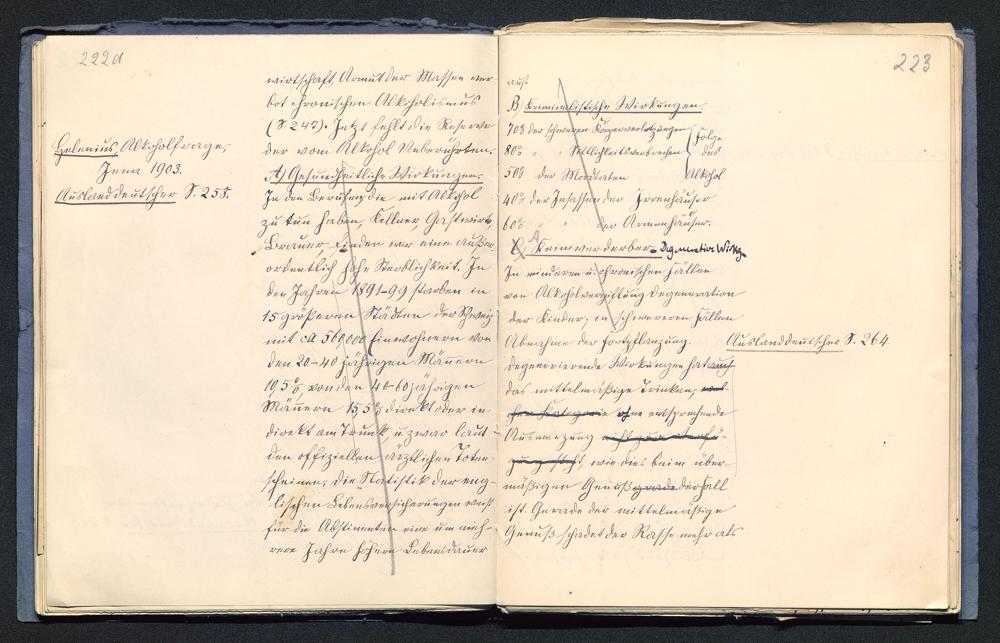 222a
Helenius, Alkoholfrage,
Jena 1903.
Auslanddeutscher S. 258.
wirtschaft, Armut der Massen ver-
bot chronischen Alkoholismus
(S. 247). Jetzt fehlt die Reserve
der vom Alkohol Unberührten.
A) Gesundheitliche Wirkungen.
In den Berufen, die mit Alkohol
zu tun haben, Kellner, Gastwirte,
Brauer, finden wir eine außer-
ordentlich hohe Sterblichkeit. In
den Jahren 1891-99 starben in
15 größeren Städten der Schweiz
mit ca 560,000 Einwohnern von
den 20-40 jährigen Männern
10,5%, von den 40-60 jährigen
Männern 15,5% direkt oder in-
direkt am Trunk, u. zwar laut
den offiziellen ärztlichen Toten-
scheinen. Die Statistik der eng-
lischen Lebensversicherungen weist
für die Abstinenten eine um meh-
rere Jahre höhere Lebensdauer
223
auf.
B) Kriminalistische Wirkungen.
70% der schweren Körperverletzungen
80% " " Sittlichkeitsverbrechen
50% der Mordtaten
Folge
des
Alkohol
40% der Insassen der Irrenhäuser
60% " " der Armenhäuser.
A Keimverderber - Degenerative Wirkg
In minderen u. chronischen Fällen
von Alkoholvergiftung Degeneration
der Kinder; in schwereren Fällen
Abnahme der Fortpflanzung.
Auslanddeutscher S. 264
degenerierende Wirkungen hat auch
das mittelmäßige Trinken,
ohne entsprechende
Ausmerzung
wie dies beim über-
mäßigen Genuß grade der Fall
ist. Gerade der mittelmäßige
Genuß schadet der Rasse mehr als